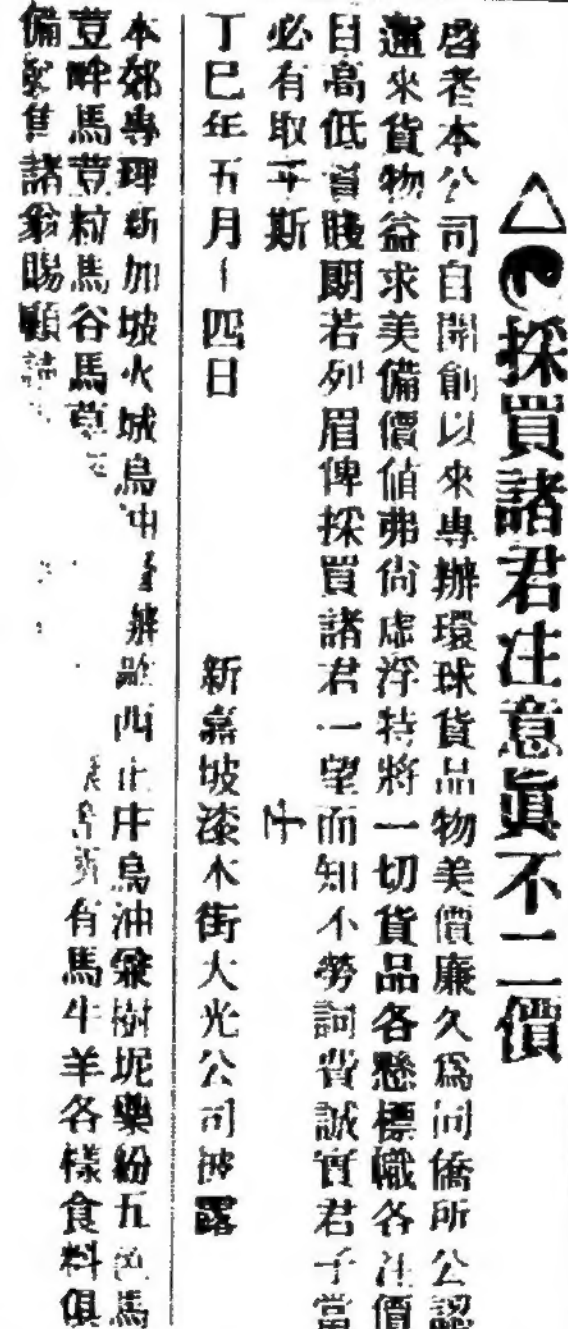 採買諸君注意眞不二價
啓者本公司自開創以來專辦環球貨品物美價廉久爲同僑所公認
邇來貨物益求美備價值弗尙虛浮特將一切貨品各懸標幟各注價
目高低貴賤朗若列眉俾採買諸君一望而知不勞詞費誠實君子當
必有取乎斯
丁巳年五月十四日 新嘉坡漆木街大光公司披露
本郊專理新加坡火城烏油 辦 西 烏油 樹坭藥粉五色馬
荳 馬荳粒馬谷馬 有馬牛羊各樣食料俱
備 售諸翁賜顧請